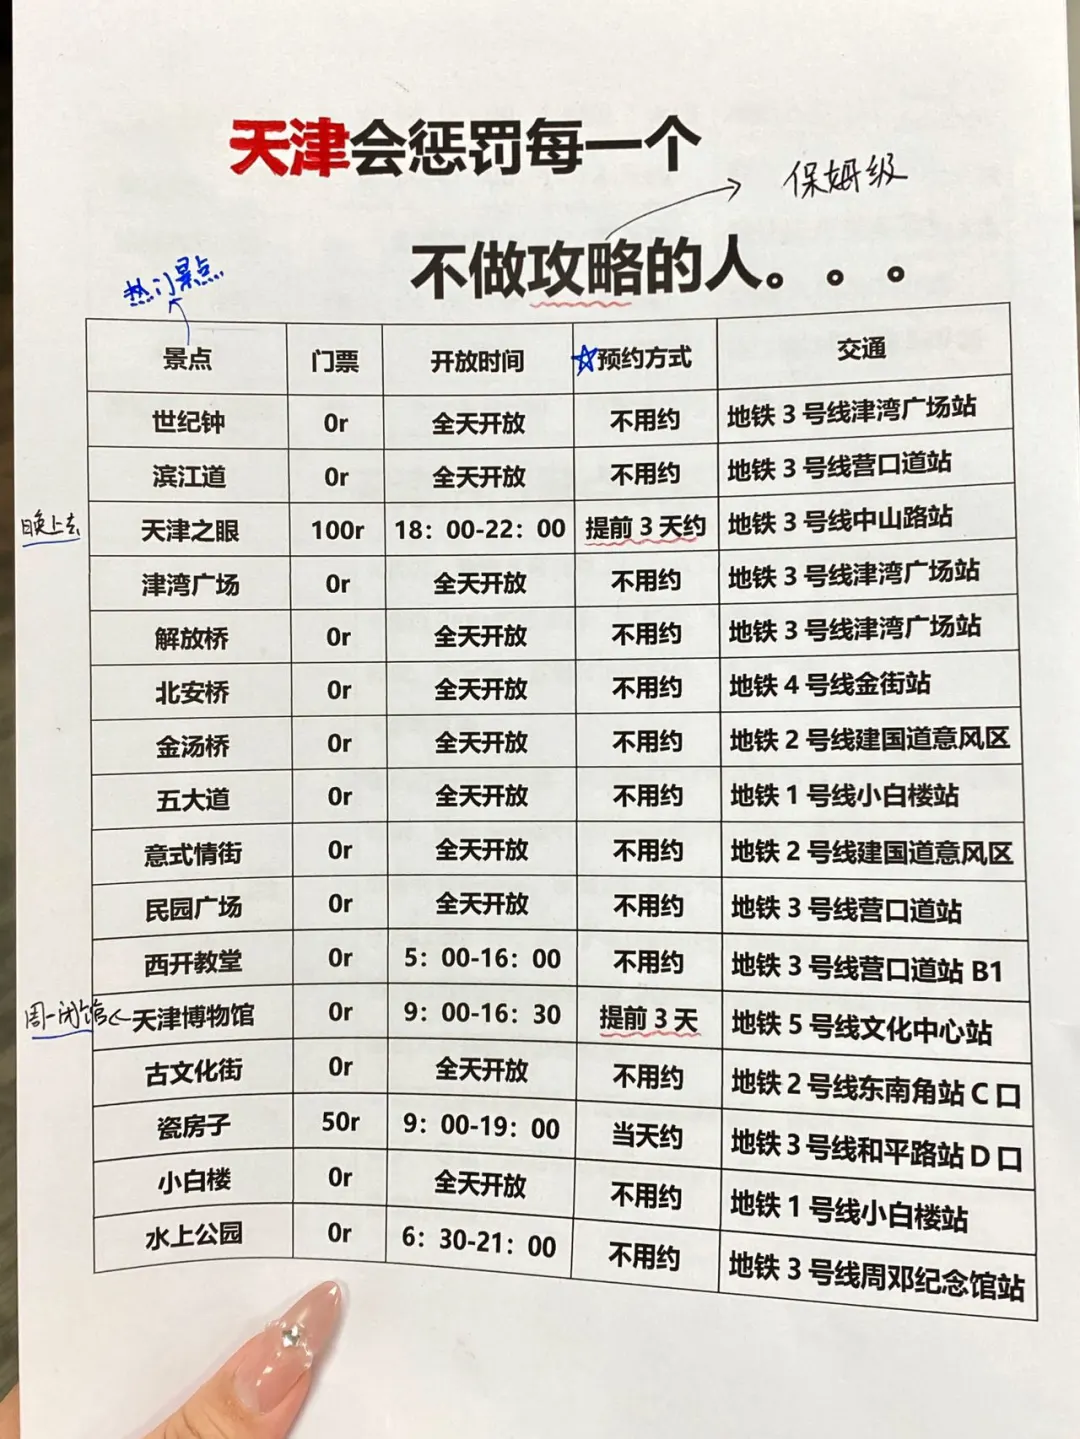 天津会惩罚每一个
保姆级
不做攻略的人。。。
热门景点
景点 门票 开放时间 ☆预约方式 交通
世纪钟 0r 全天开放 不用约 地铁 3 号线津湾广场站
滨江道 0r 全天开放 不用约 地铁 3 号线营口道站
晚上去 天津之眼 100r 18：00-22：00 提前 3 天约 地铁 3 号线中山路站
津湾广场 0r 全天开放 不用约 地铁 3 号线津湾广场站
解放桥 0r 全天开放 不用约 地铁 3 号线津湾广场站
北安桥 0r 全天开放 不用约 地铁 4 号线金街站
金汤桥 0r 全天开放 不用约 地铁 2 号线建国道意风区
五大道 0r 全天开放 不用约 地铁 1 号线小白楼站
意式情街 0r 全天开放 不用约 地铁 2 号线建国道意风区
民园广场 0r 全天开放 不用约 地铁 3 号线营口道站
西开教堂 0r 5：00-16：00 不用约 地铁 3 号线营口道站 B1
周一闭馆 天津博物馆 0r 9：00-16：30 提前 3 天 地铁 5 号线文化中心站
古文化街 0r 全天开放 不用约 地铁 2 号线东南角站 C 口
瓷房子 50r 9：00-19：00 当天约 地铁 3 号线和平路站 D 口
小白楼 0r 全天开放 不用约 地铁 1 号线小白楼站
水上公园 0r 6：30-21：00 不用约 地铁 3 号线周邓纪念馆站